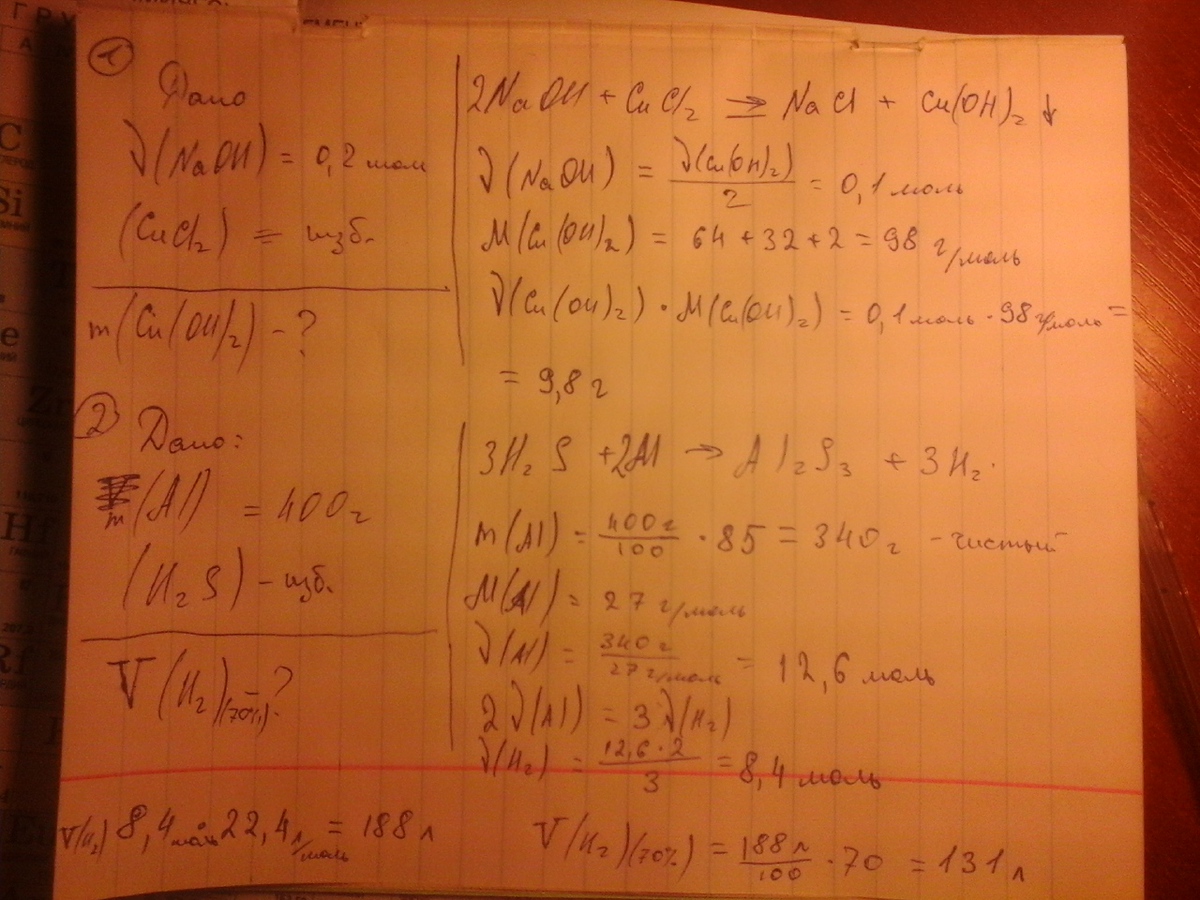 1
Дано
ν(NaOH) = 0,2 моль
(CuCl₂) = изб.
m(Cu(OH)₂) - ?
2NaOH + CuCl₂ → NaCl + Cu(OH)₂ ↓
ν(NaOH) = ν(Cu(OH)₂)/2 = 0,1 моль
M(Cu(OH)₂) = 64 + 32 + 2 = 98 г/моль
ν(Cu(OH)₂) · M(Cu(OH)₂) = 0,1 моль · 98 г/моль =
= 9,8 г
2 Дано:
m(Al) = 400 г
(H₂S) - изб.
V(H₂)(70%) - ?
3H₂S + 2Al → Al₂S₃ + 3H₂.
m(Al) = 400 г/100 · 85 = 340 г - чистый
M(Al) = 27 г/моль
ν(Al) = 340 г/27 г/моль = 12,6 моль
2ν(Al) = 3ν(H₂)
ν(H₂) = 12,6 · 2/3 = 8,4 моль
V(H₂) 8,4 моль · 22,4 л/моль = 188 л
V(H₂)(70%) = 188 л/100 · 70 = 131 л
C
Si
Zn
Hf
Rf